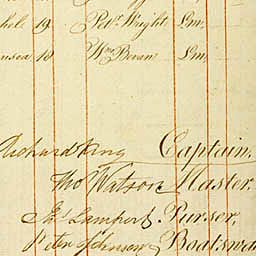 hel 19 Robt. Wright Lm,
nsea 18 Wm Bevan Lm,
Richard King Captain.
Tho Watson Master.
Jas Lamport. Purser,
Peter Johnson Boatswa